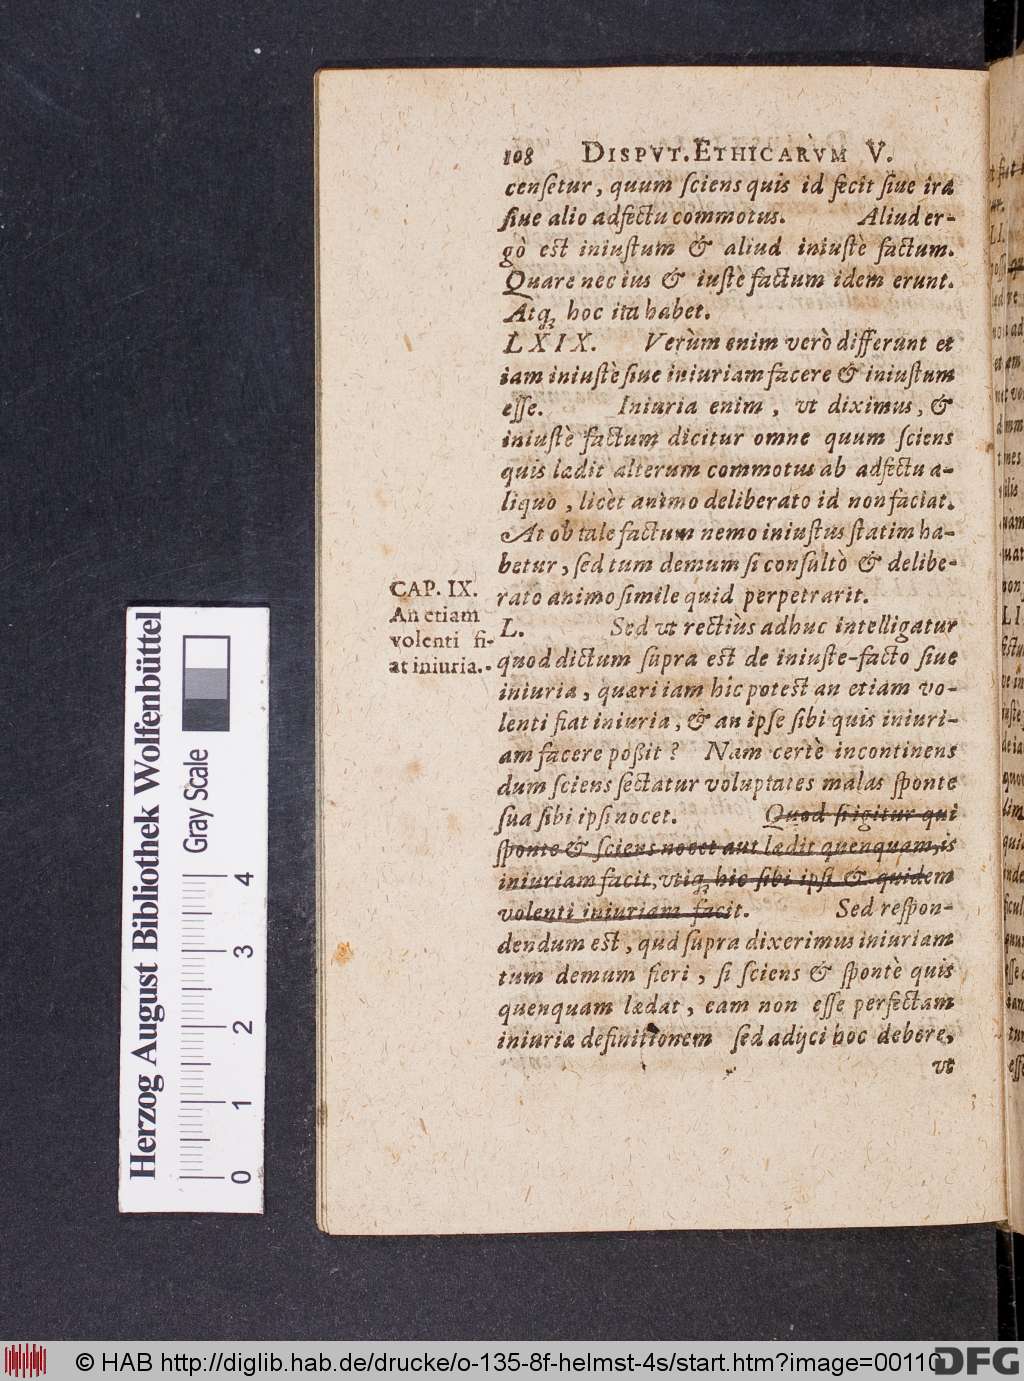 108 DISPVT. ETHICARVM V.
censetur, quum sciens quis id fecit siue ira
siue alio adfectu commotus. Aliud er-
gò est iniustum & aliud iniustè factum.
Quare nec ius & iustè factum idem erunt.
Atq; hoc ita habet.
LXIX. Verùm enim verò differunt et
iam iniustè siue iniuriam facere & iniustum
esse. Iniuria enim, vt diximus, &
iniustè factum dicitur omne quum sciens
quis lædit alterum commotus ab adfectu a-
liquo, licèt animo deliberato id non faciat.
At ob tale factum nemo iniustus statim ha-
betur, sed tum demum si consultò & delibe-
rato animo simile quid perpetrarit.
CAP. IX.
An etiam
volenti fi-
at iniuria.
L. Sed vt rectiùs adhuc intelligatur
quod dictum supra est de iniuste-facto siue
iniuria, quæri iam hic potest an etiam vo-
lenti fiat iniuria, & an ipse sibi quis iniuri-
am facere poßit? Nam certè incontinens
dum sciens sectatur voluptates malas sponte
sua sibi ipsi nocet. Quod si igitur qui
sponte & sciens nocet aut lædit quenquam, is
iniuriam facit, vtiq; hic sibi ipsi & quidem
volenti iniuriam facit. Sed respon-
dendum est, quod supra dixerimus iniuriam
tum demum fieri, si sciens & spontè quis
quenquam lædat, eam non esse perfectam
iniuriæ definitionem sed adijci hoc debere,
vt
Herzog August Bibliothek Wolfenbüttel
Gray Scale
0 1 2 3 4
© HAB http://diglib.hab.de/drucke/o-135-8f-helmst-4s/start.htm?image=00110
DFG